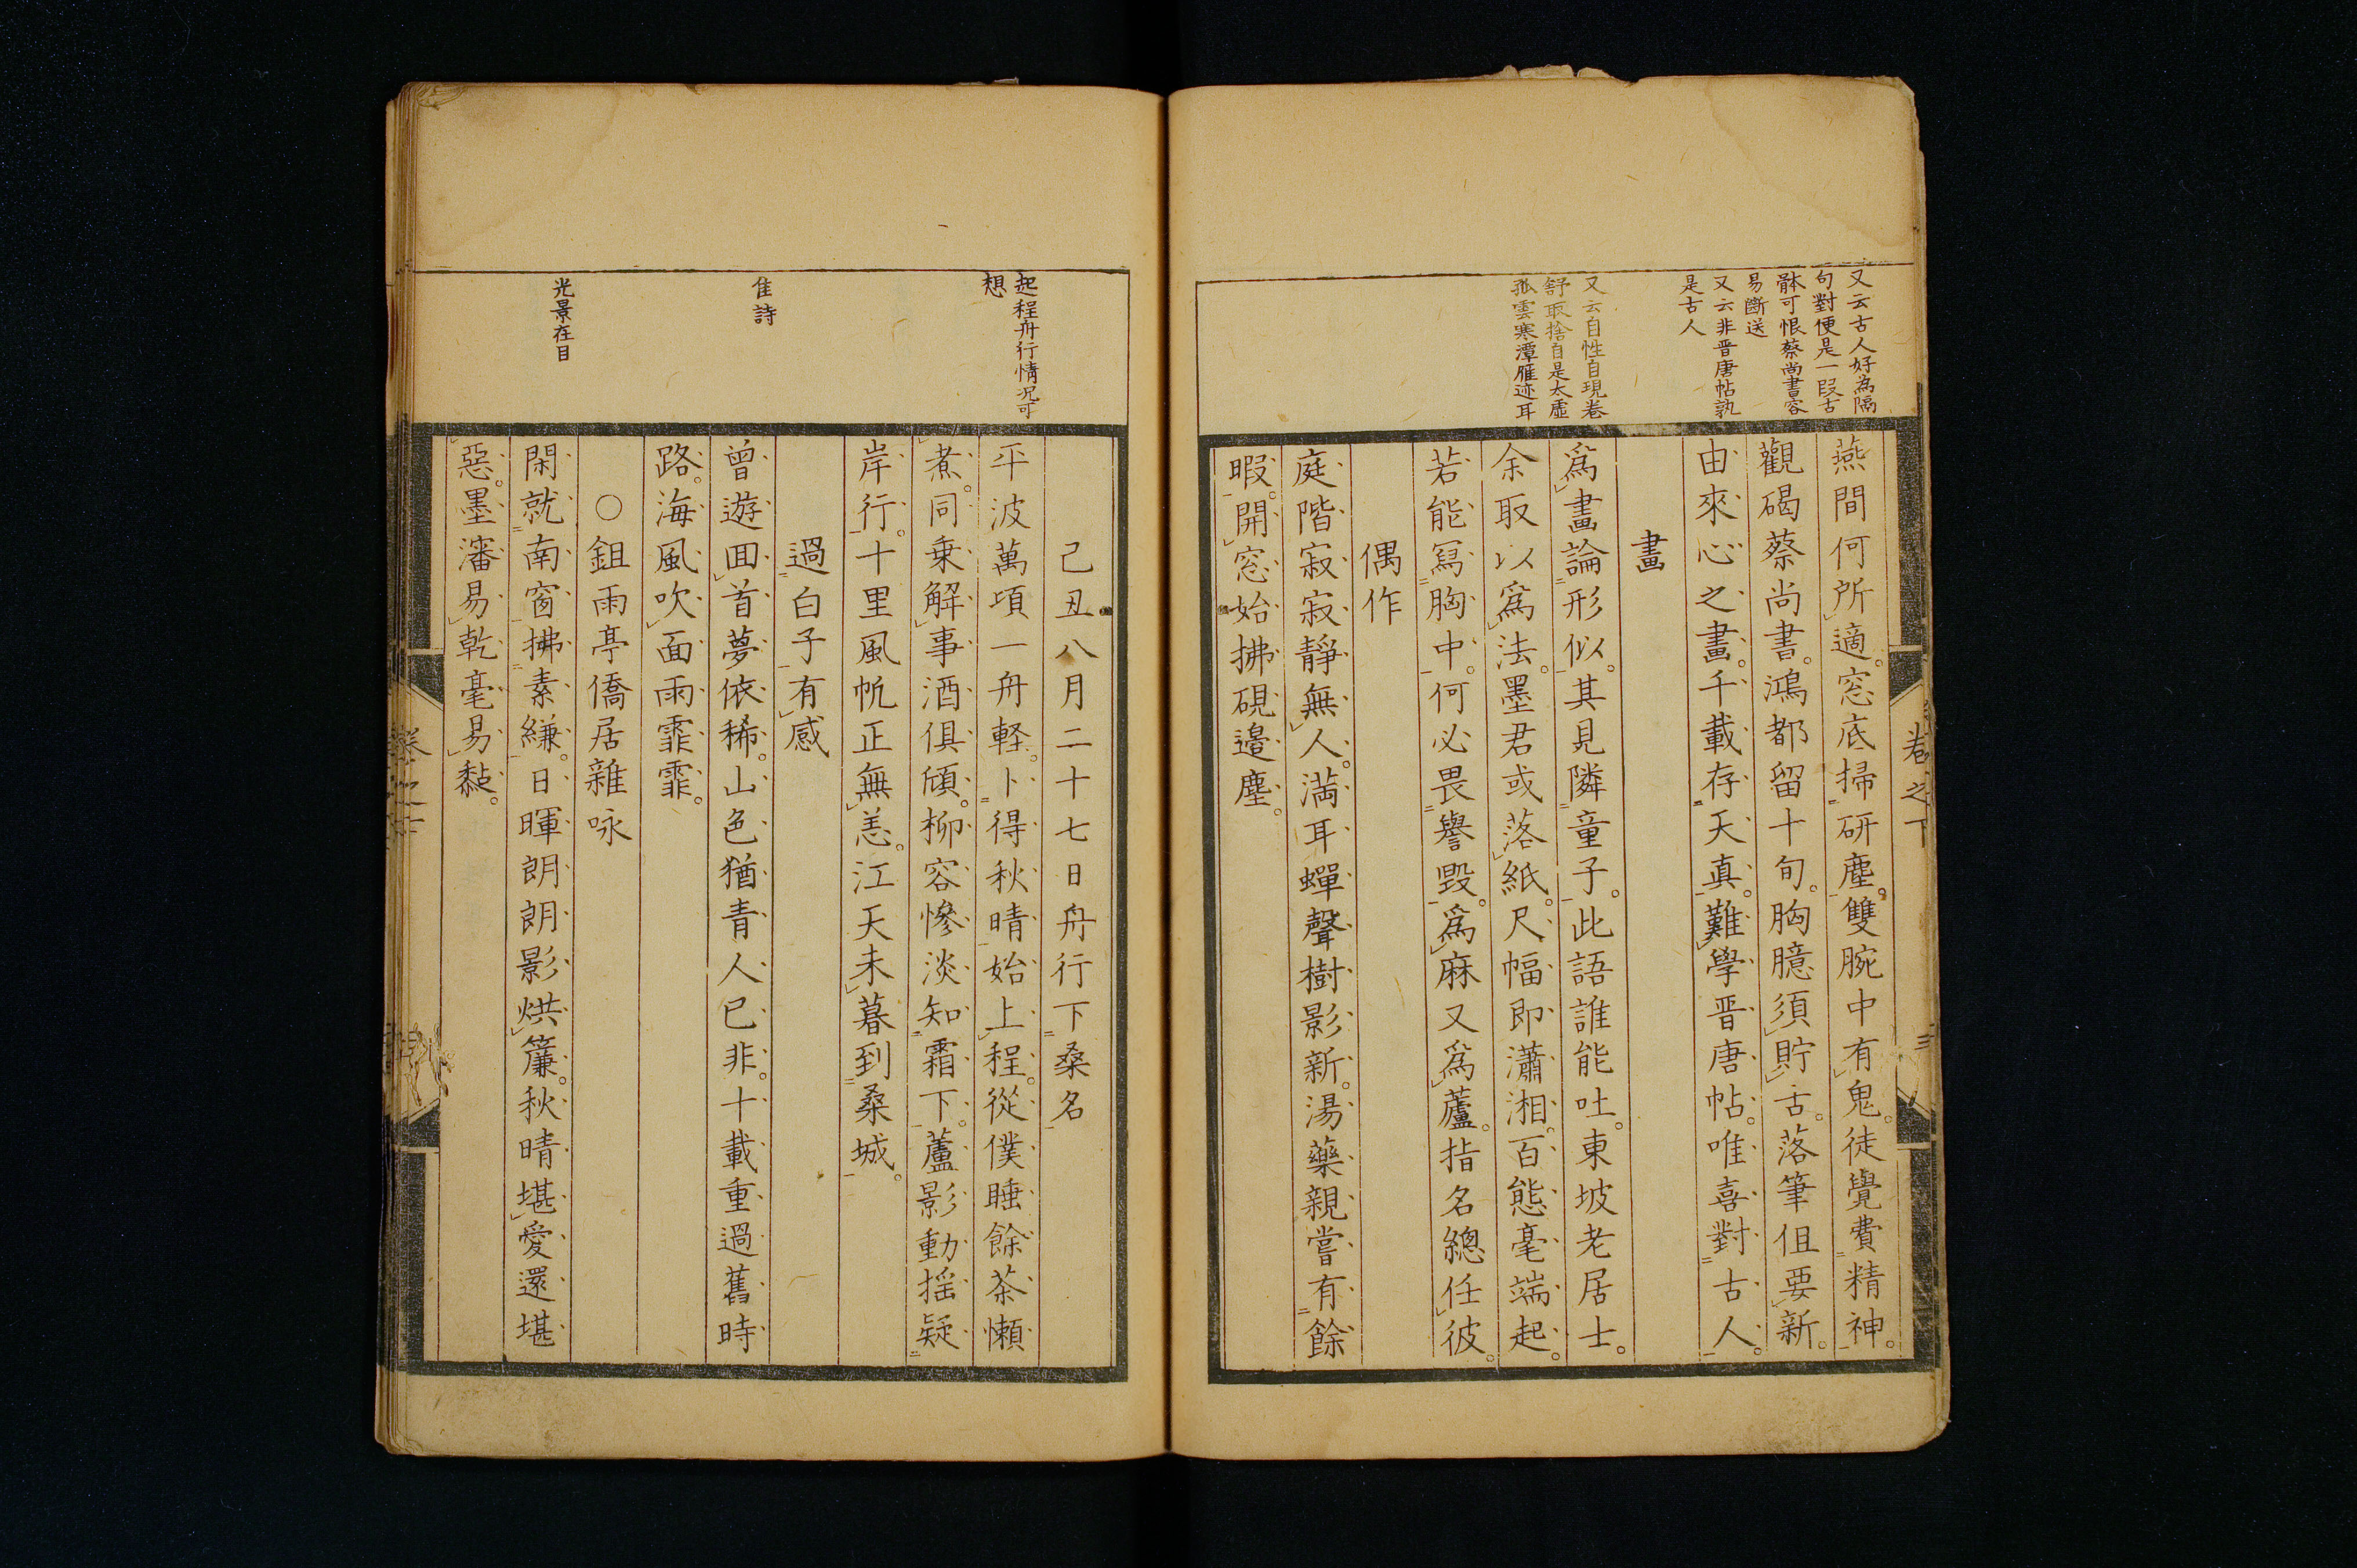 又云古人好為隔
句對便是一段古
骵可恨蔡尚書容
易斷送
又云非晋唐帖孰
是古人
又云自性自現卷
舒取捨自是太虛
孤雲寒潭雁迹耳
卷之下
三
燕間何所適。窓底掃研塵。雙腕中有鬼。徒覺費精神。
觀碣蔡尚書。鴻都留十旬。胸臆須貯古。落筆但要新。
由來心之畫。千載存天真。難學晋唐帖。唯喜對古人。
畫
爲畫論形似。其見隣童子。此語誰能吐。東坡老居士。
余取以爲法。墨君或落紙。尺幅即瀟湘。百態毫端起。
若能冩胸中。何必畏譽毀。爲麻又爲蘆。指名總任彼。
偶作
庭階寂寂靜無人。満耳蟬聲樹影新。湯藥親嘗有餘
暇。開窓始拂硯邉塵。
起程舟行情况可
想
佳詩
光景在目
己丑八月二十七日舟行下桑名
平波萬頃一舟軽。卜得秋晴始上程。從僕睡餘茶懶
煮。同乗解事酒俱傾。柳容慘淡知霜下。蘆影動揺疑
岸行。十里風帆正無恙。江天未暮到桑城。
過白子有感
曾遊囬首夢依稀。山色猶青人已非。十載重過舊時
路。海風吹面雨霏霏。
○鉏雨亭僑居雜咏
閑就南窗拂素縑。日暉朗朗影烘簾。秋晴堪愛還堪
惡。墨瀋易乾毫易黏。